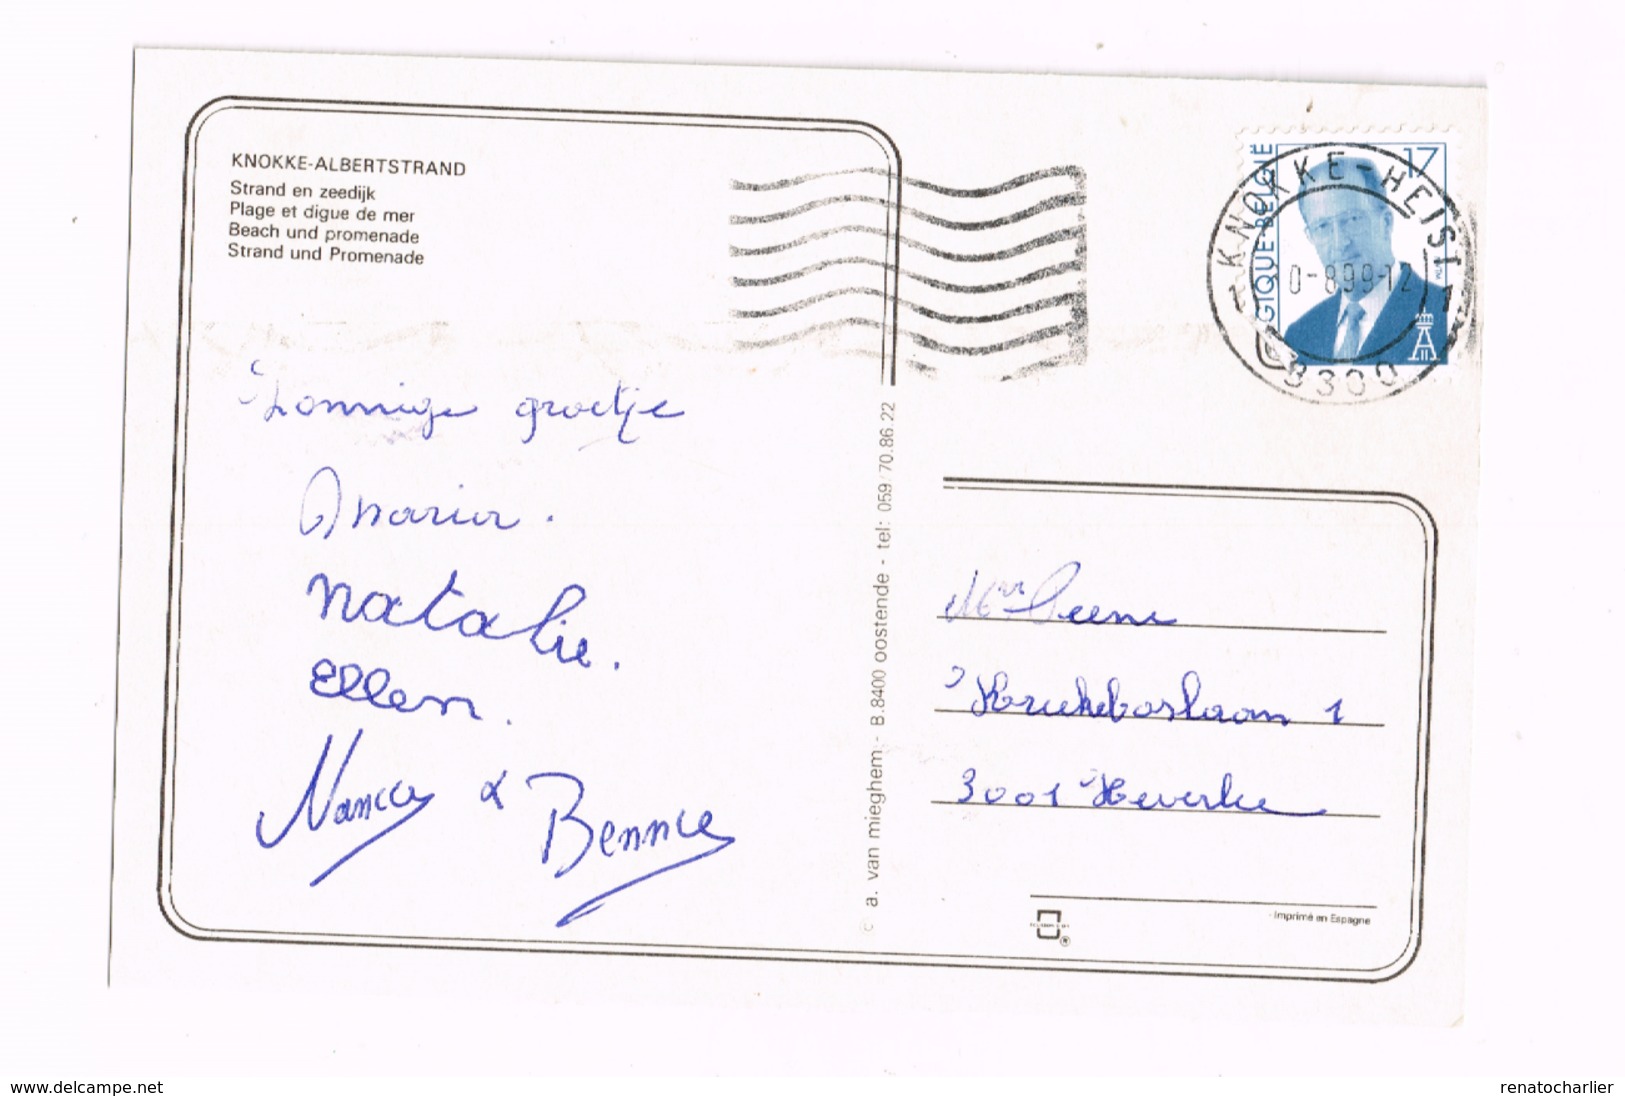 KNOKKE-ALBERTSTRAND
Strand en zeedijk
Plage et digue de mer
Beach und promenade
Strand und Promenade
Zonnige groetje
Maria.
Natalie.
Ellen.
Nancy & Bennie
© a. van mieghem - B.8400 oostende - tel: 059/70.86.22
17
BELGIQUE BELGIË
KNOKKE-HEIST 1
0-899-12
8300
1
3001 Heverlee
Imprimé en Espagne
www.delcampe.net
renatocharlier